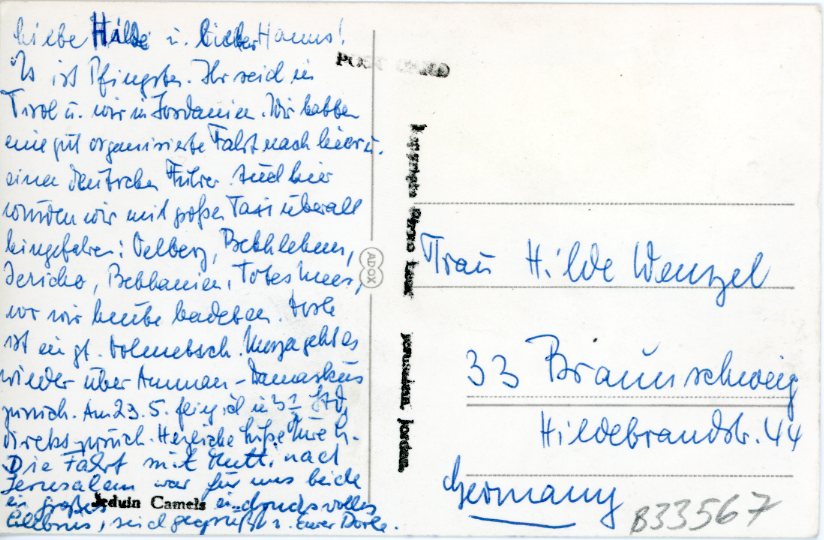 Liebe Hilde u. lieber Hanns!
Es ist Pfingsten. Ihr seid in
Tirol u. wir in Jordanien. Wir hatten
eine gut organisierte Fahrt nach hier u.
einen deutschen Führer. Auch hier
wurden wir mit großen Taxi überall
hingefahren: Oelberg, Bethlehem,
Jericho, Bethanien, Totes Meer,
wo wir heute badeten. Dorle
ist ein gt. Dolmetsch. Morgen geht es
wieder über Amman - Damaskus
zurück. Am 23.5. flieg ich in 3½ Std.
direkt zurück. Herzliche Grüße
Die Fahrt mit Mutti nach
Jerusalem war für uns beide
ein großes eindrucksvolles
Erlebnis, seid gegrüßt v. Eurer Dorle.
Beduin Camels
POST CARD
ADOX
Jerusalem, Jordan
Frau Hilde Wenzel
33 Braunschweig
Hildebrandstr. 44
Germany
B33567